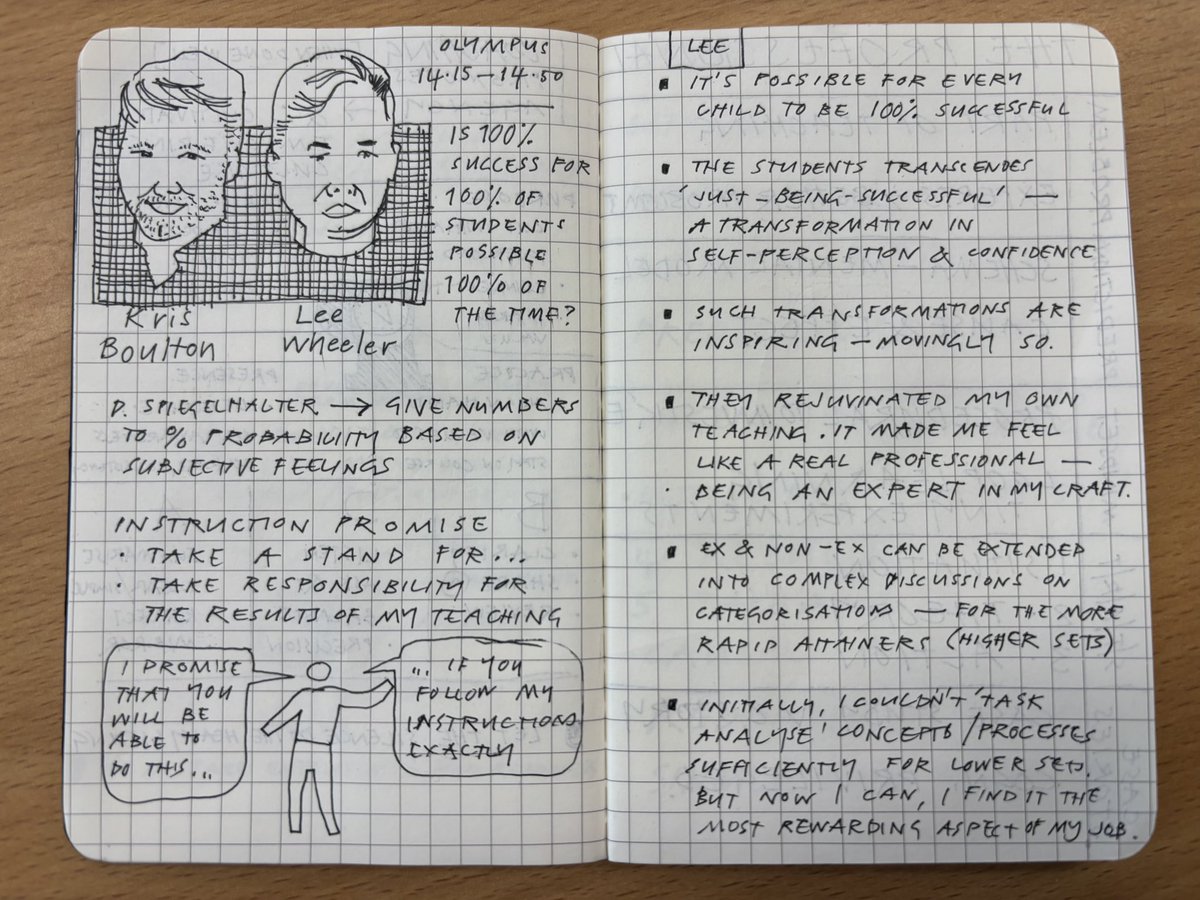 OLYMPUS
14.15 — 14.50
IS 100%
SUCCESS FOR
100% OF
STUDENTS
POSSIBLE
100% OF
THE TIME?
Kris
Boulton
Lee
Wheeler
D. SPIEGELHALTER → GIVE NUMBERS
TO % PROBABILITY BASED ON
SUBJECTIVE FEELINGS
INSTRUCTION PROMISE
· TAKE A STAND FOR...
· TAKE RESPONSIBILITY FOR
THE RESULTS OF MY TEACHING
I PROMISE
THAT YOU
WILL BE
ABLE TO
DO THIS...
... IF YOU
FOLLOW MY
INSTRUCTIONS
EXACTLY
LEE
▪ IT'S POSSIBLE FOR EVERY
CHILD TO BE 100% SUCCESSFUL
▪ THE STUDENTS TRANSCENDES
'JUST-BEING-SUCCESSFUL' —
A TRANSFORMATION IN
SELF-PERCEPTION & CONFIDENCE
▪ SUCH TRANSFORMATIONS ARE
INSPIRING — MOVINGLY SO.
▪ THEY REJUVINATED MY OWN
TEACHING. IT MADE ME FEEL
LIKE A REAL PROFESSIONAL —
BEING AN EXPERT IN MY CRAFT.
▪ EX & NON-EX CAN BE EXTENDED
INTO COMPLEX DISCUSSIONS ON
CATEGORISATION — FOR THE MORE
RAPID ATTAINERS (HIGHER SETS)
▪ INITIALLY, I COULDN'T 'TASK
ANALYSE' CONCEPTS/PROCESSES
SUFFICIENTLY FOR LOWER SETS.
BUT NOW I CAN, I FIND IT THE
MOST REWARDING ASPECT OF MY JOB.